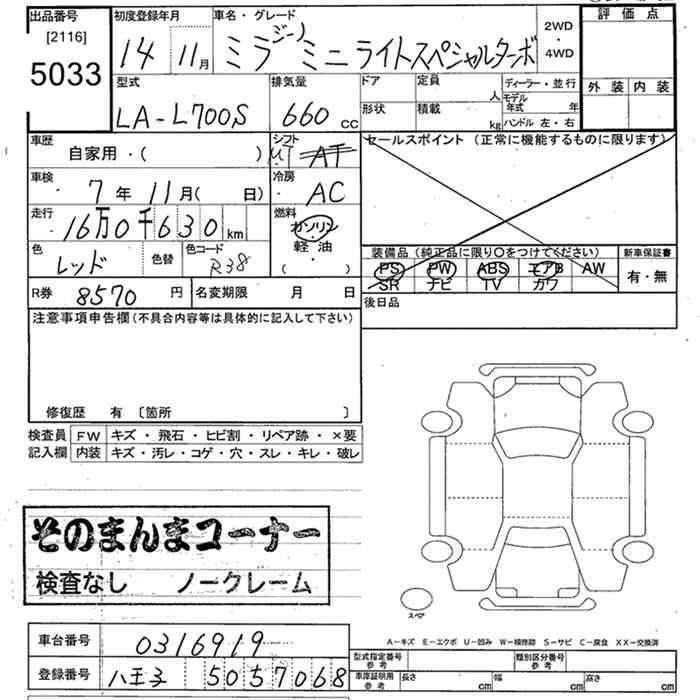 出品番号 初度登録年月 車名・グレード 評価点
[2116]
5033 14 11月 ミラジーノ ミニライトスペシャルターボ 2WD・4WD
型式 排気量 ドア 定員 人 ディーラー・並行 外装 内装
LA-L700S 660 CC 形状 積載 kg モデル年式 年
ハンドル 左・右
車歴 自家用・( ) シフト MT AT セールスポイント (正常に機能するものに限ります)
車検 7年11月( 日) 冷房 AC
走行 16万0千630km 燃料 ガソリン
軽油
( )
色 レッド 色替 色コード R38
装備品 (純正品に限り○をつけてください) 新車保証書
PS PW ABS エアB AW 有・無
SR ナビ TV カワ
R券 8570円 名変期限 月 日 後日品
注意事項申告欄(不具合内容等は具体的に記入して下さい)
修復歴 有 〔箇所 〕
検査員 FW キズ・飛石・ヒビ割・リペア跡・×要
記入欄 内装 キズ・汚レ・コゲ・穴・スレ・キレ・破レ
そのまんまコーナー
検査なし ノークレーム
スペア
A-キズ E-エクボ U-凹み W-補修跡 S-サビ C-腐食 XX-交換済
車台番号 0316919 型式指定番号 参考 類別区分番号 参考
登録番号 八王子 50 5 7068 車庫証明用 参考 長さ cm 幅 cm 高さ cm